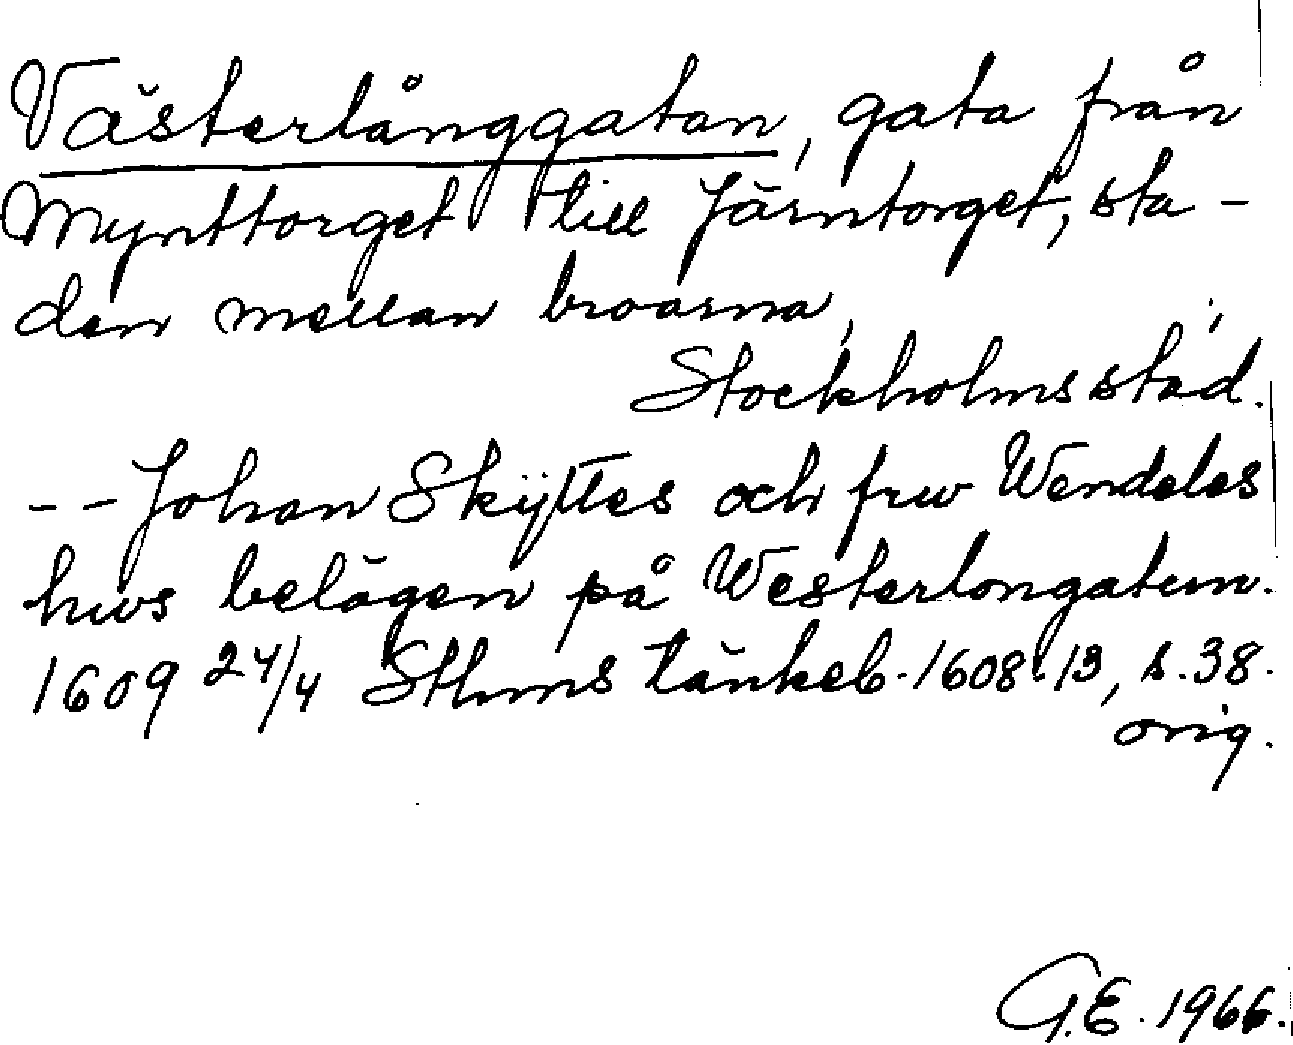 Västerlånggatan, gata från
Mynttorget till Järntorget, sta-
den mellan broarna,
Stockholms stad.
-- Johan Skÿttes och fru Wendeles
hws belägen på Westerlongatun.
1609 24/4 Sthms tänkeb. 1608-13, s. 38.
orig.
G.E. 1966.